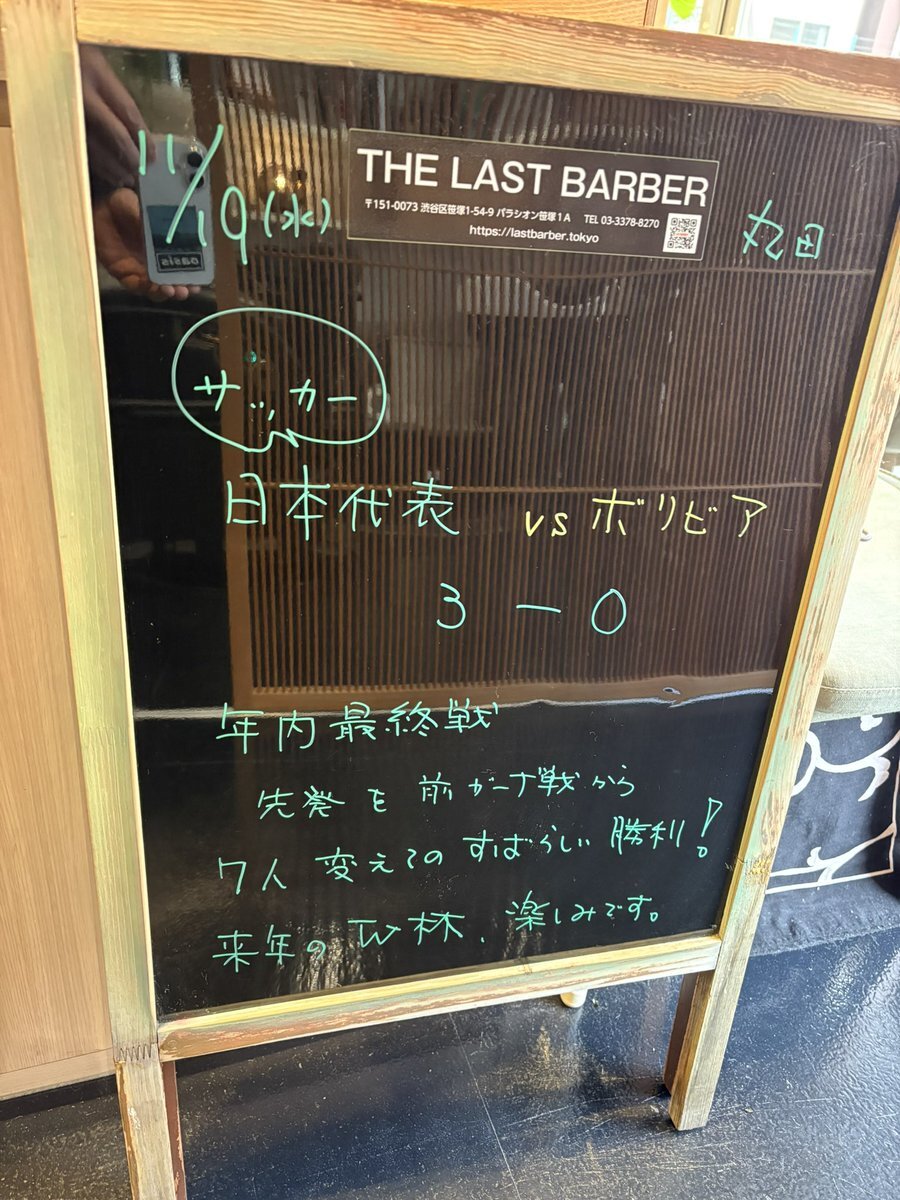 11/19(水)
THE LAST BARBER
〒151-0073 渋谷区笹塚1-54-9 パラシオン笹塚1A TEL 03-3378-8270
https://lastbarber.tokyo
丸田
サッカー
日本代表 vsボリビア
3-0
年内最終戦
先発を前ガーナ戦から
7人変えてのすばらしい勝利!
来年のW杯、楽しみです。